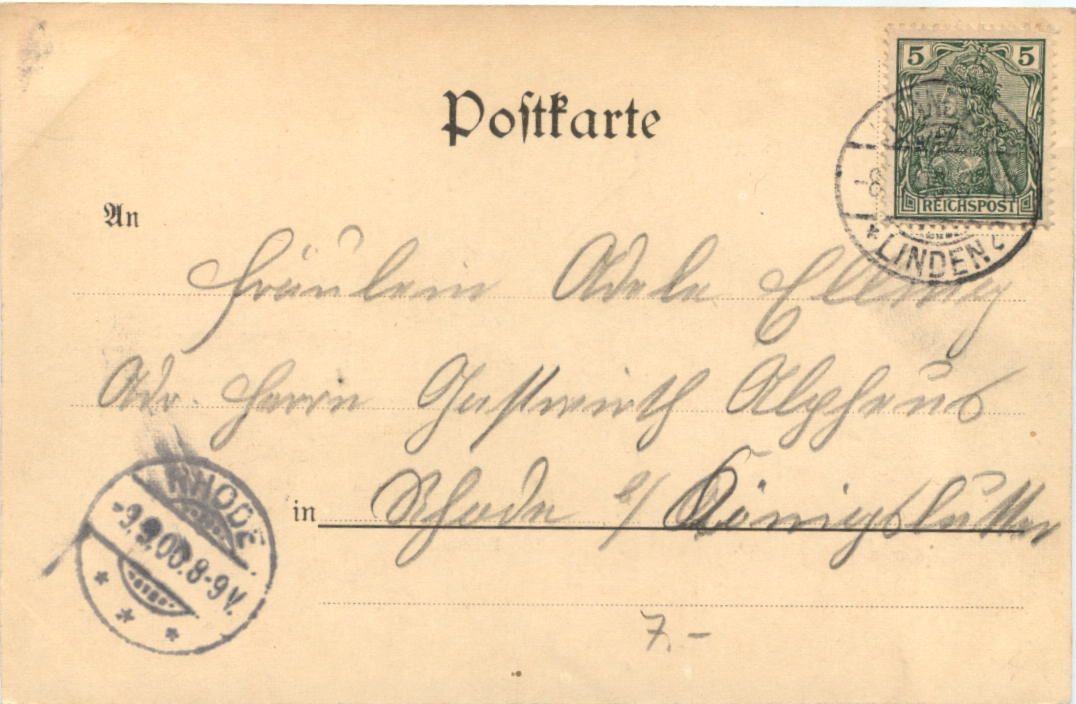 Postkarte
5 5
REICHSPOST
*LINDEN
An
Fräulein Adele
Adr. Herrn Gastwirth Alpheus
in Rhode b/ Königslutter
RHODE
-9.9.00.8-9V.
* * *
7.-